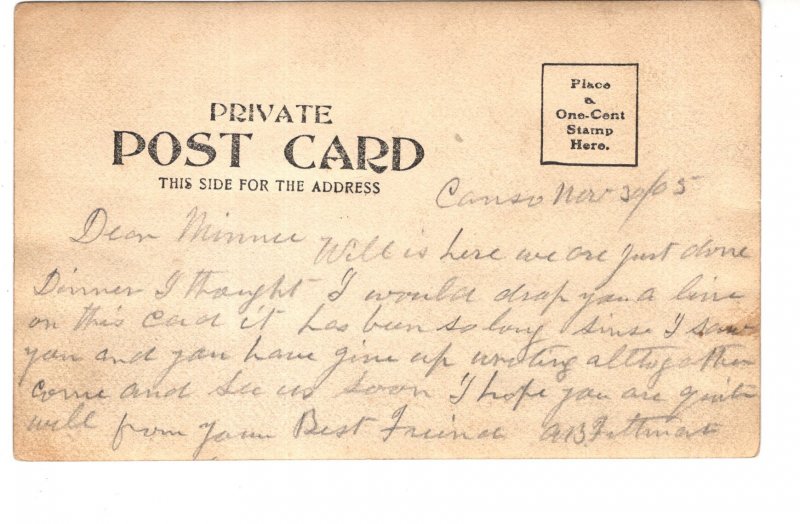 PRIVATE
POST CARD
THIS SIDE FOR THE ADDRESS
Place
a
One-Cent
Stamp
Here.
Canso Nov 30/05
Dear Minnie
Will is here we are just done
Dinner I thought I would drop you a line
on this card it has been so long sinse I saw
you and you have give up writing alltogether
come and see us soon I hope you are quite
well from your Best Friend AB